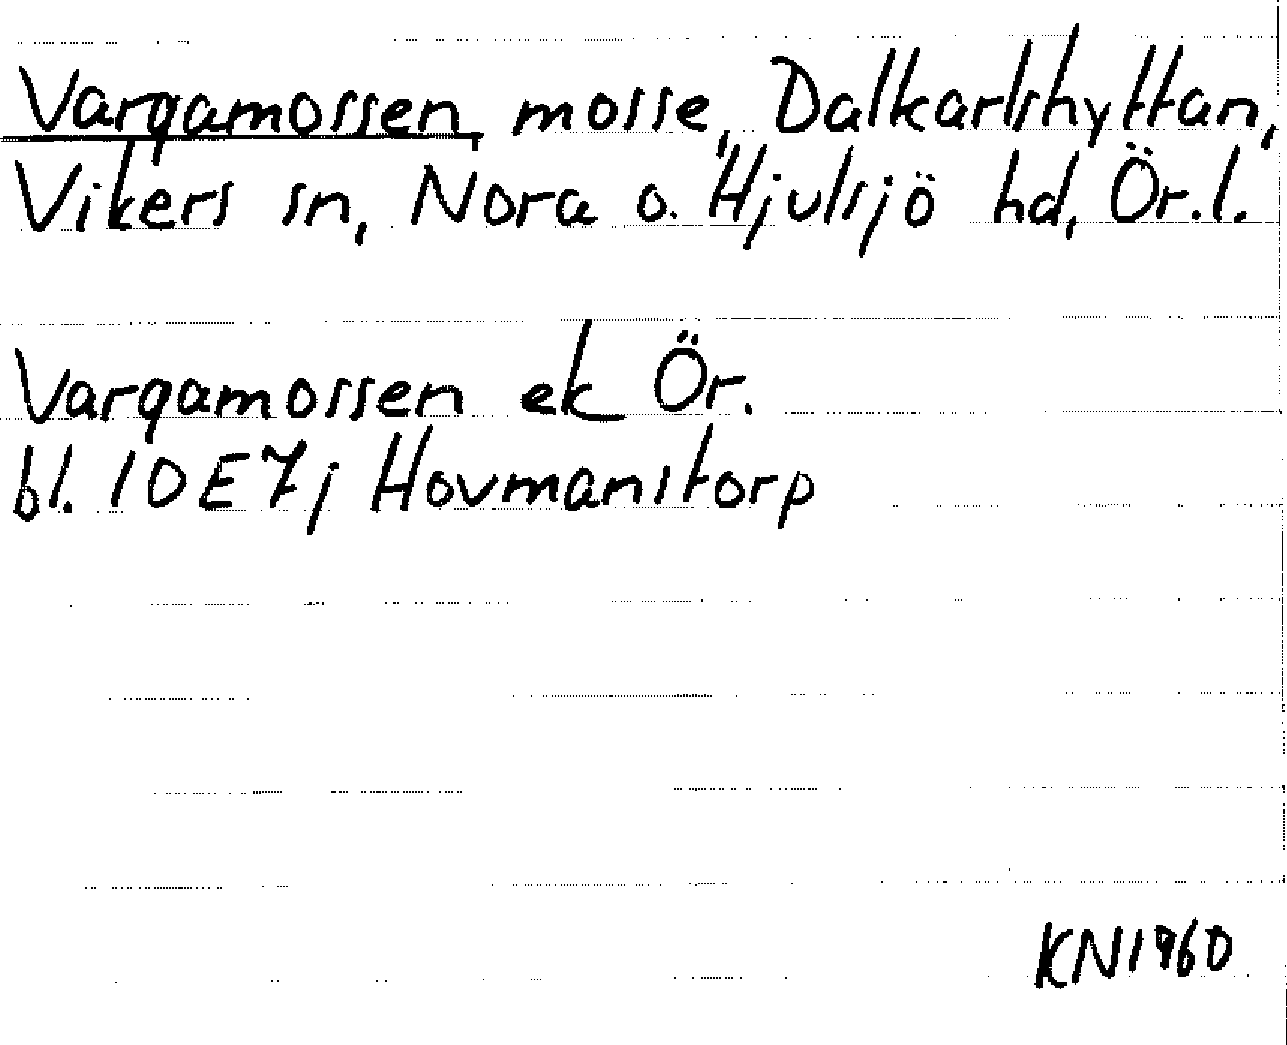 Vargamossen, mosse, Dalkarlshyttan,
Vikers sn, Nora o. Hjulsjö hd, Ör.l.
Vargamossen ek Ör.
bl. 10E7j Hovmanstorp
KN1960